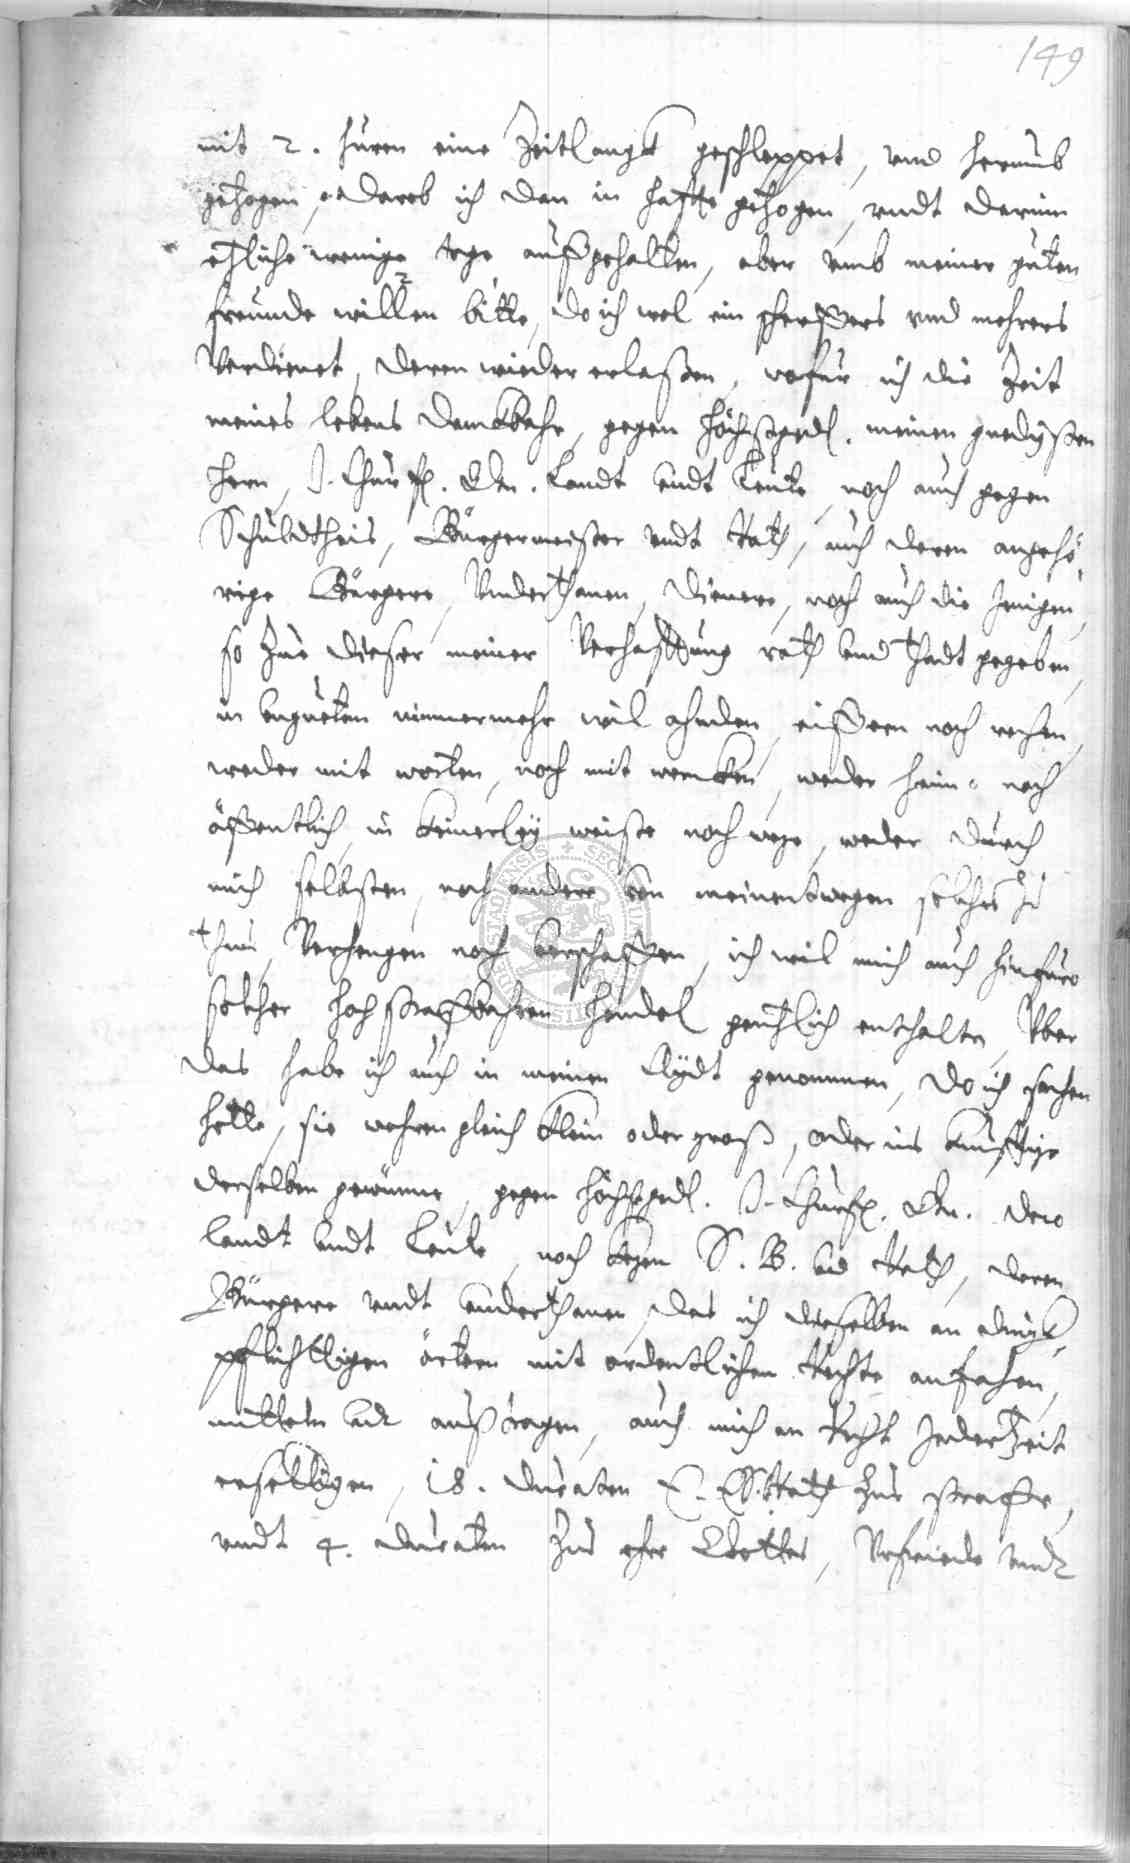 149
mit 2. huren eine Zeitlangk geschleppet, vnd herumb
gezogen, darob ich dan in haffte gezogen, vndt darin
etzliche wenige tage auffgehalten, aber vmb meiner guten
freunde willen bitte, do ich wol ein scherffers vnd mehrers
Verdienet, deren wieder erlaßen, wofur ich die Zeit
meines lebens danckbahr, gegen höchstgedl. meinen gnedigsten
hern, J. Churf. Gn. Landt vndt Leute, noch auch gegen
Schuldtheis, Bürgermeister vndt Rath, auch deren angehö
rige Bürgere, Vnderthanen, Dienere, noch auch die Jenigen,
so Zue dieser meiner Verhafftung rath vnd thadt gegeben,
in vnguten nimmermehr wil ahnden, eiffern noch rechen,
weder mit worten, noch mit wercken, weder heim- noch
öffentlich, in keinerley weise noch wege, weder durch
mich selbsten, noch andere von meinentwegen solches zu
thun, Verhengen noch verschaffen, ich wil mich auch hinfuro
solcher hoch straffbahren hendel gentzlich enthalten, Vber
das habe ich auch in meinen Eydt genommen, do ich sachen
hette, sie wehren gleich klein oder groß, oder ins künfftige
derselben gewünne, gegen höchstgedl. J. Churf. Gn. dero
landt vndt Leute, noch kegen S. B. vnd Rath, deren
Bürgere vndt vnderthanen, das ich dieselben an
pflichtigen örtern mit ordentlichen Rechte anfahen,
mitteln vndt außtragen, auch mich an Recht Jederzeit
ersettigen, 18. Ducaten E. E. Rath Zur straffe,
vndt 4. ducaten Zur ehre Gottes, Vrfriede vndt